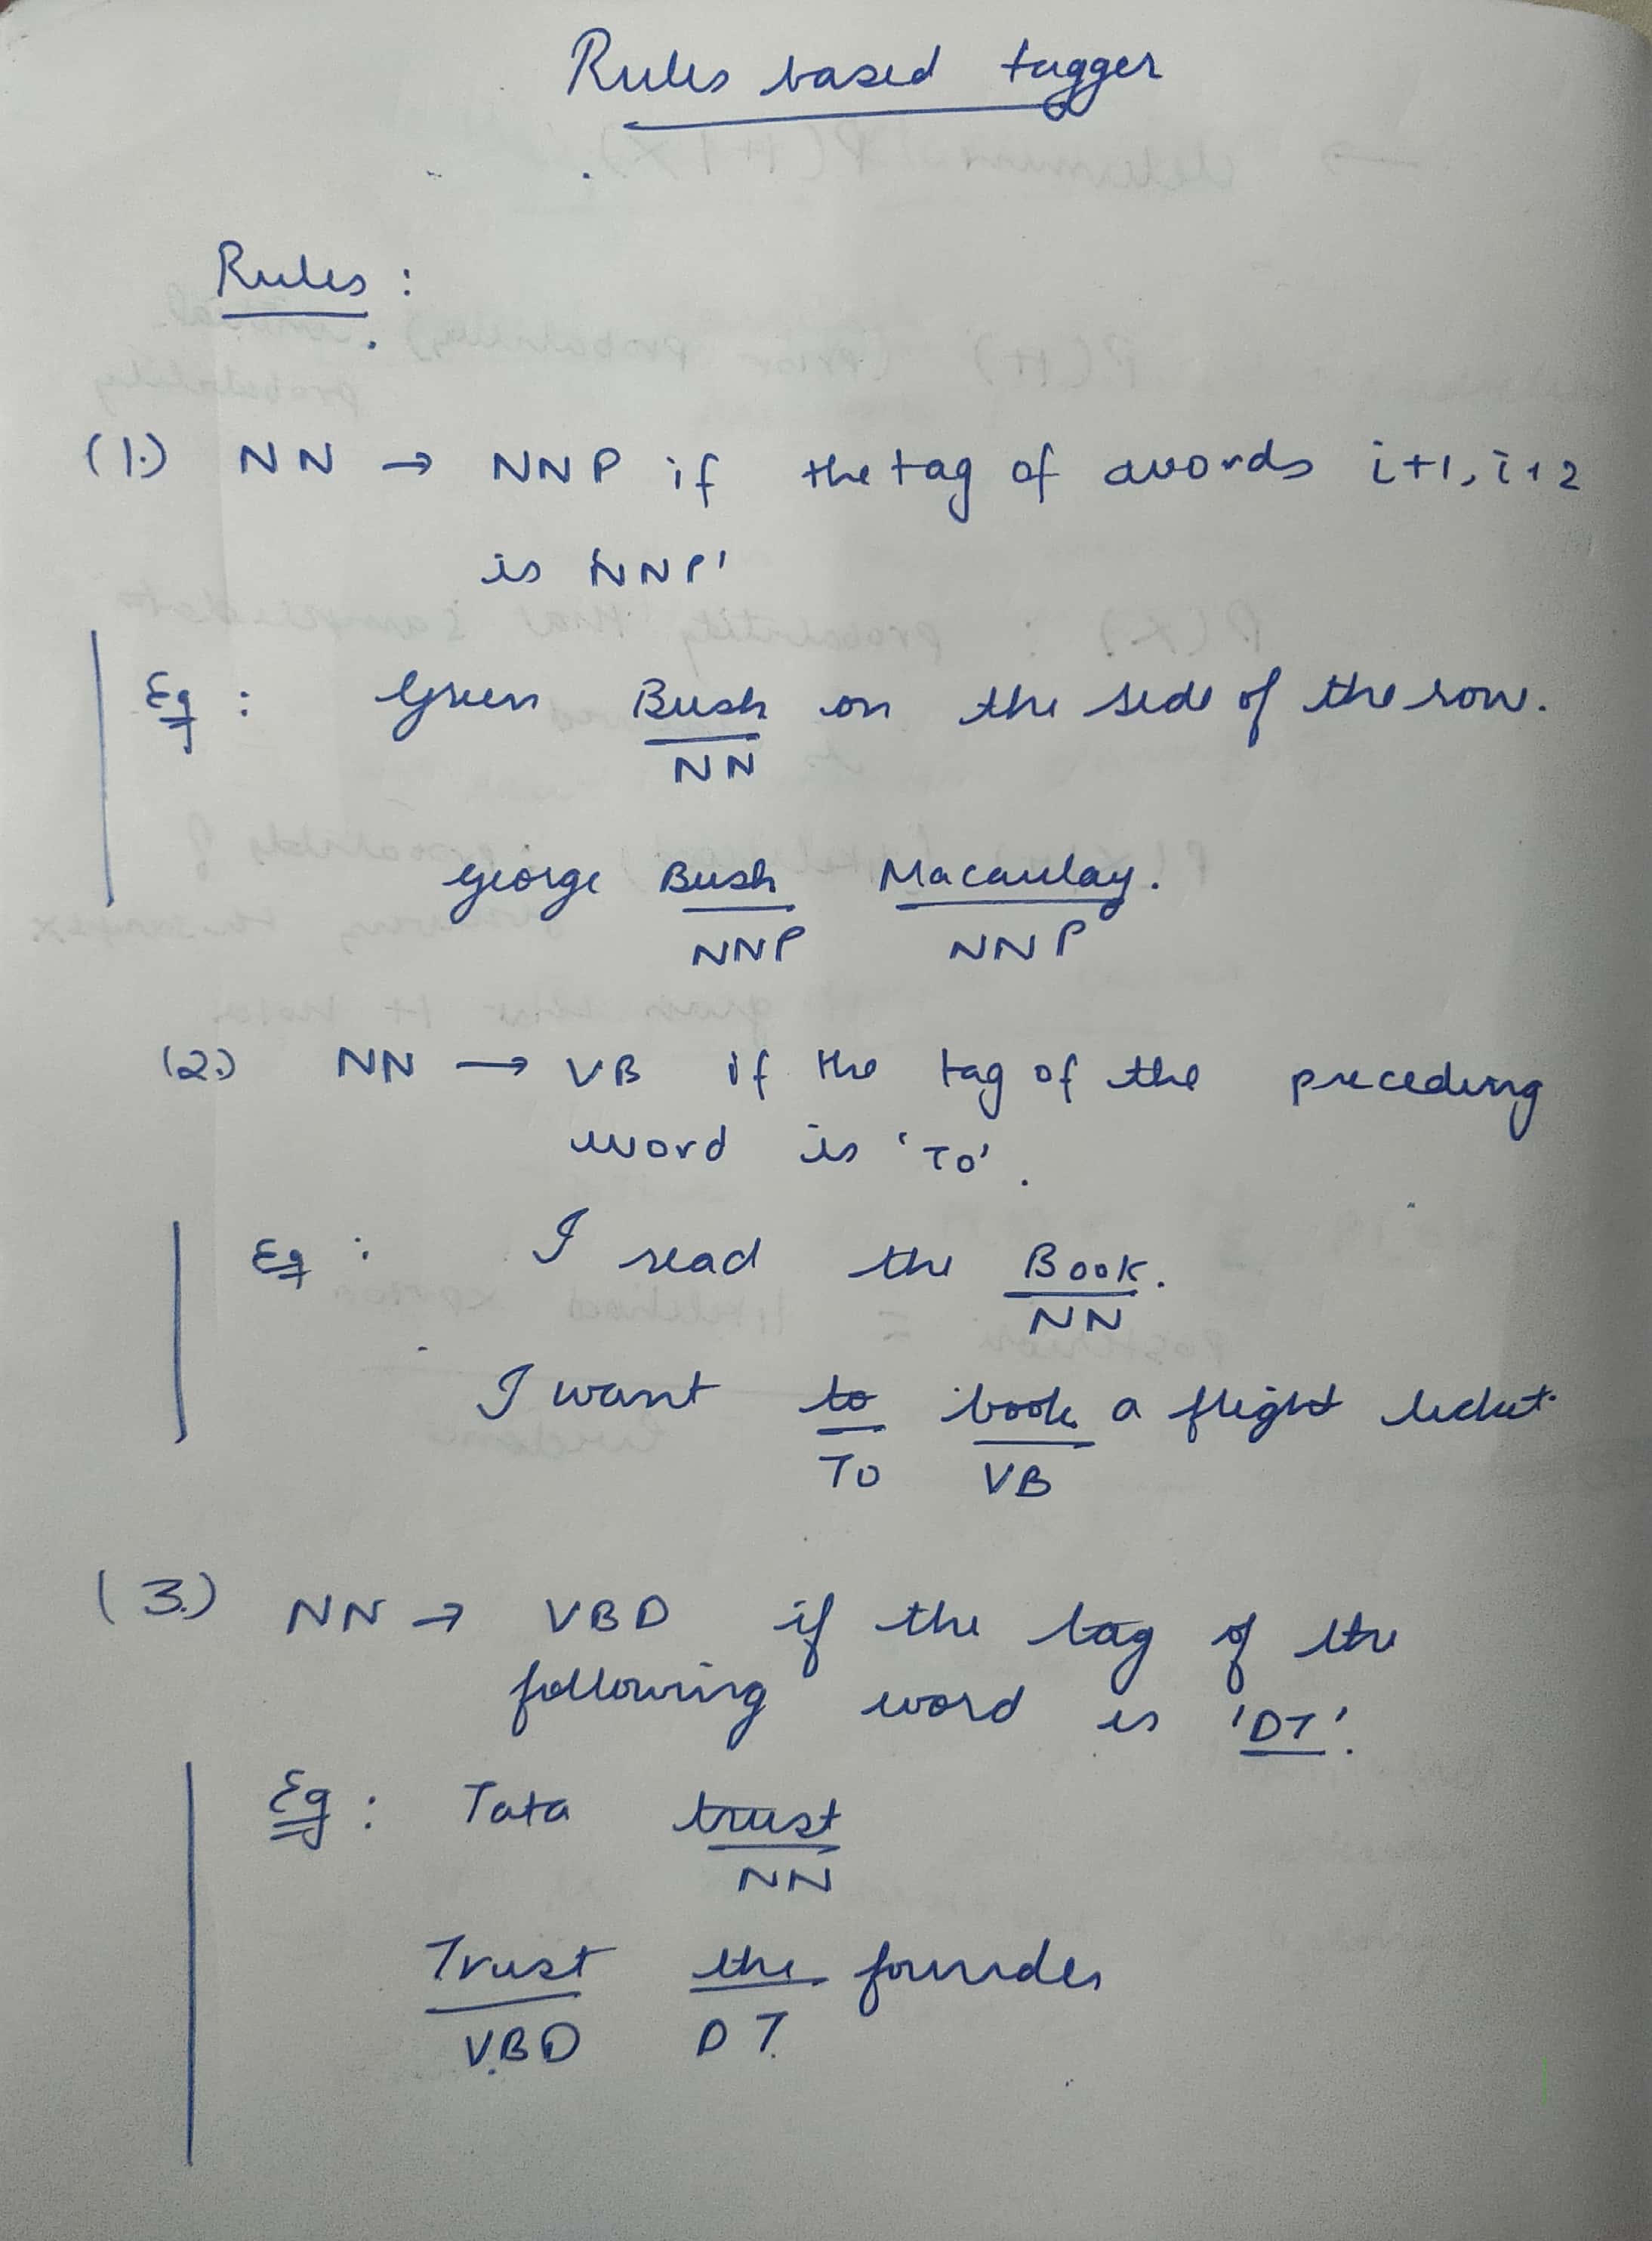 Rules based tagger
Rules :
(1.) NN → NNP if the tag of words i+1, i+2
is 'NNP'
Eg : Green Bush on the side of the row.
NN
George Bush Macaulay.
NNP NNP
(2.) NN → VB if the tag of the preceding
word is 'TO'.
Eg : I read the Book.
NN
I want to book a flight ticket.
TO VB
(3.) NN → VBD if the tag of the
following word is 'DT'.
Eg : Tata trust
NN
Trust the founder
VBD DT